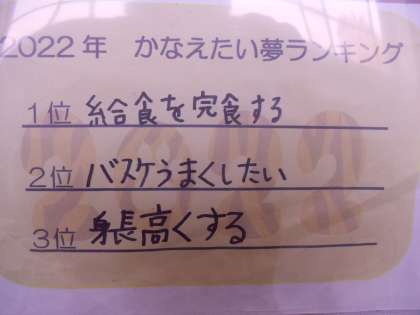 2022年 かなえたい夢ランキング
1位 給食を完食する
2位 バスケうまくしたい
3位 身長高くする
2022